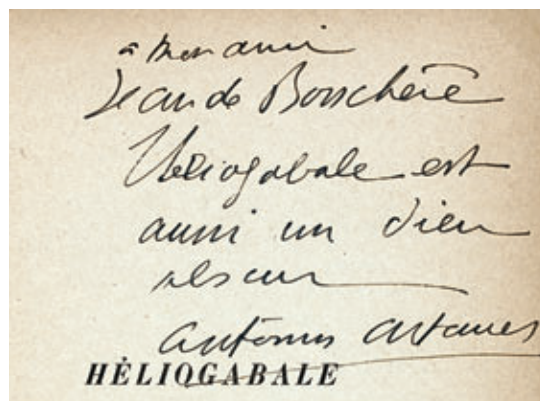 à mon ami
Jean de Bosschère
Héliogabale est
aussi un dieu
obscur
Antonin Artaud
HÉLIOGABALE